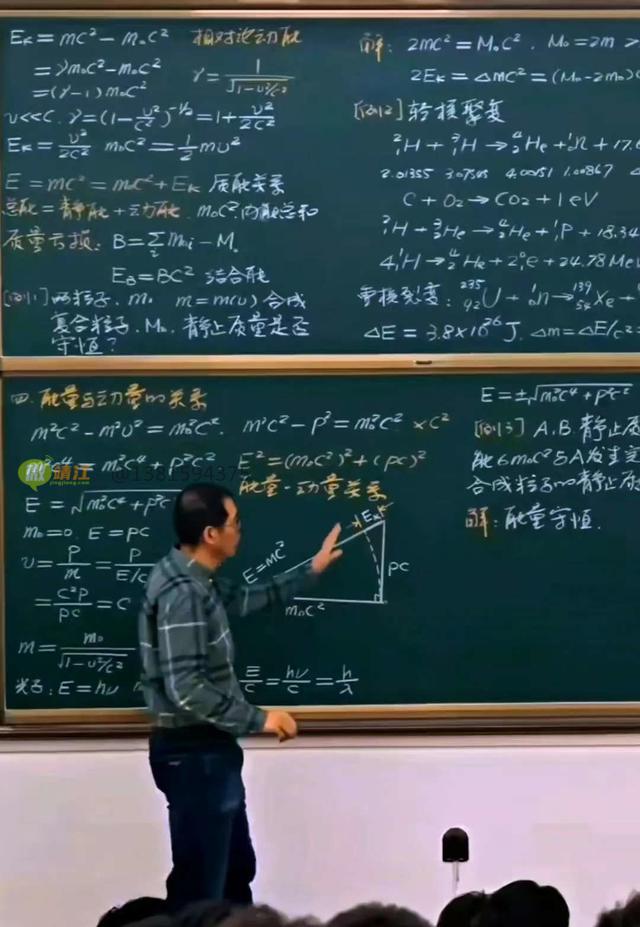 Eₖ = mc² − m₀c² 相对论动能
= γm₀c² − m₀c² γ = 1/√(1−υ²/c²)
= (γ−1) m₀c²
υ<<c. γ = (1 − υ²/c²)^(-1/2) = 1 + υ²/2c²
Eₖ = υ²/2c² m₀c² = 1/2 mυ²
E = mc² = m₀c² + Eₖ 质能关系
总能 = 静能 + 动能. m₀c²: 内能总和
质量亏损: B = Σᵢ m₀ᵢ − M₀
E_B = Bc² 结合能
[例1] 两粒子. m₀ m = m(υ) 合成
复合粒子. M₀. 静止质量是否
守恒?
解: 2mc² = M₀c². M₀ = 2m >
2Eₖ = Δmc² = (M₀−2m₀)c
[例2] 轻核聚变
²₁H + ³₁H → ⁴₂He + ¹₀n + 17.6
2.01355 4.00151 1.00867
C + O₂ → CO₂ + 1eV
²₁H + ³₂He → ⁴₂He + ¹₁P + 18.34
4¹₁H → ⁴₂He + 2⁰₁e + 24.78MeV
重核裂变: ²³⁵₉₂U + ¹₀n → ¹³⁹₅₄Xe +
ΔE = 3.8×10 J. Δm = ΔE/c²
四. 能量与动量的关系
m²c² − m²υ² = m₀²c². m²c² − p² = m₀²c² ×c²
m²c⁴ = m₀²c⁴ + p²c² E² = (m₀c²)² + (pc)²
能量-动量关系
E = √(m₀²c⁴ + p²c²)
m₀ = 0. E = pc
υ = p/m = p/E/c
= c²p/pc = c
m = m₀/√(1−υ²/c²)
光子: E = hν
E/c = hν/c = h/λ
E = mc²
Eₖ
pc
m₀c²
E = ±√(m₀²c⁴ + p²c²)
[例3] A.B. 静止质
能6m₀c²与A发生
合成粒子的静止质
解: 能量守恒.
微靖江
jingjiang.com